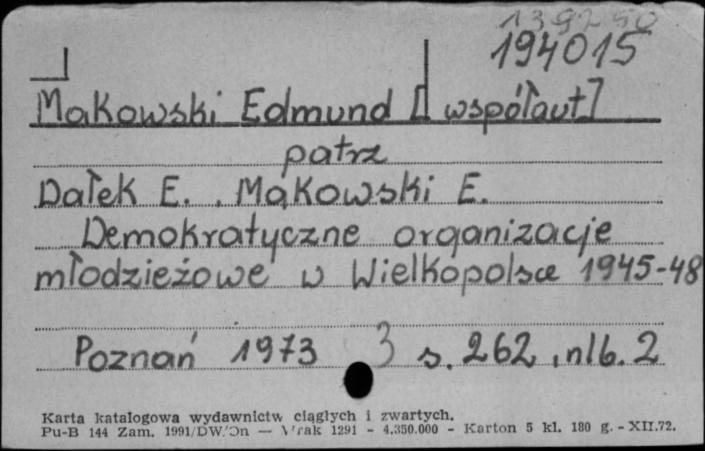 139290
194015
Makowski Edmund [współaut]
patrz
Dałek E., Makowski E.
Demokratyczne organizacje
młodzieżowe w Wielkopolsce 1945-48
Poznań 1973 3 s. 262, nlb. 2
Karta katalogowa wydawnictw ciągłych i zwartych.
Pu-B 144 Zam. 1991/DW. — 1291 - 4.350.000 - Karton 5 kl. 180 g. - XII.72.